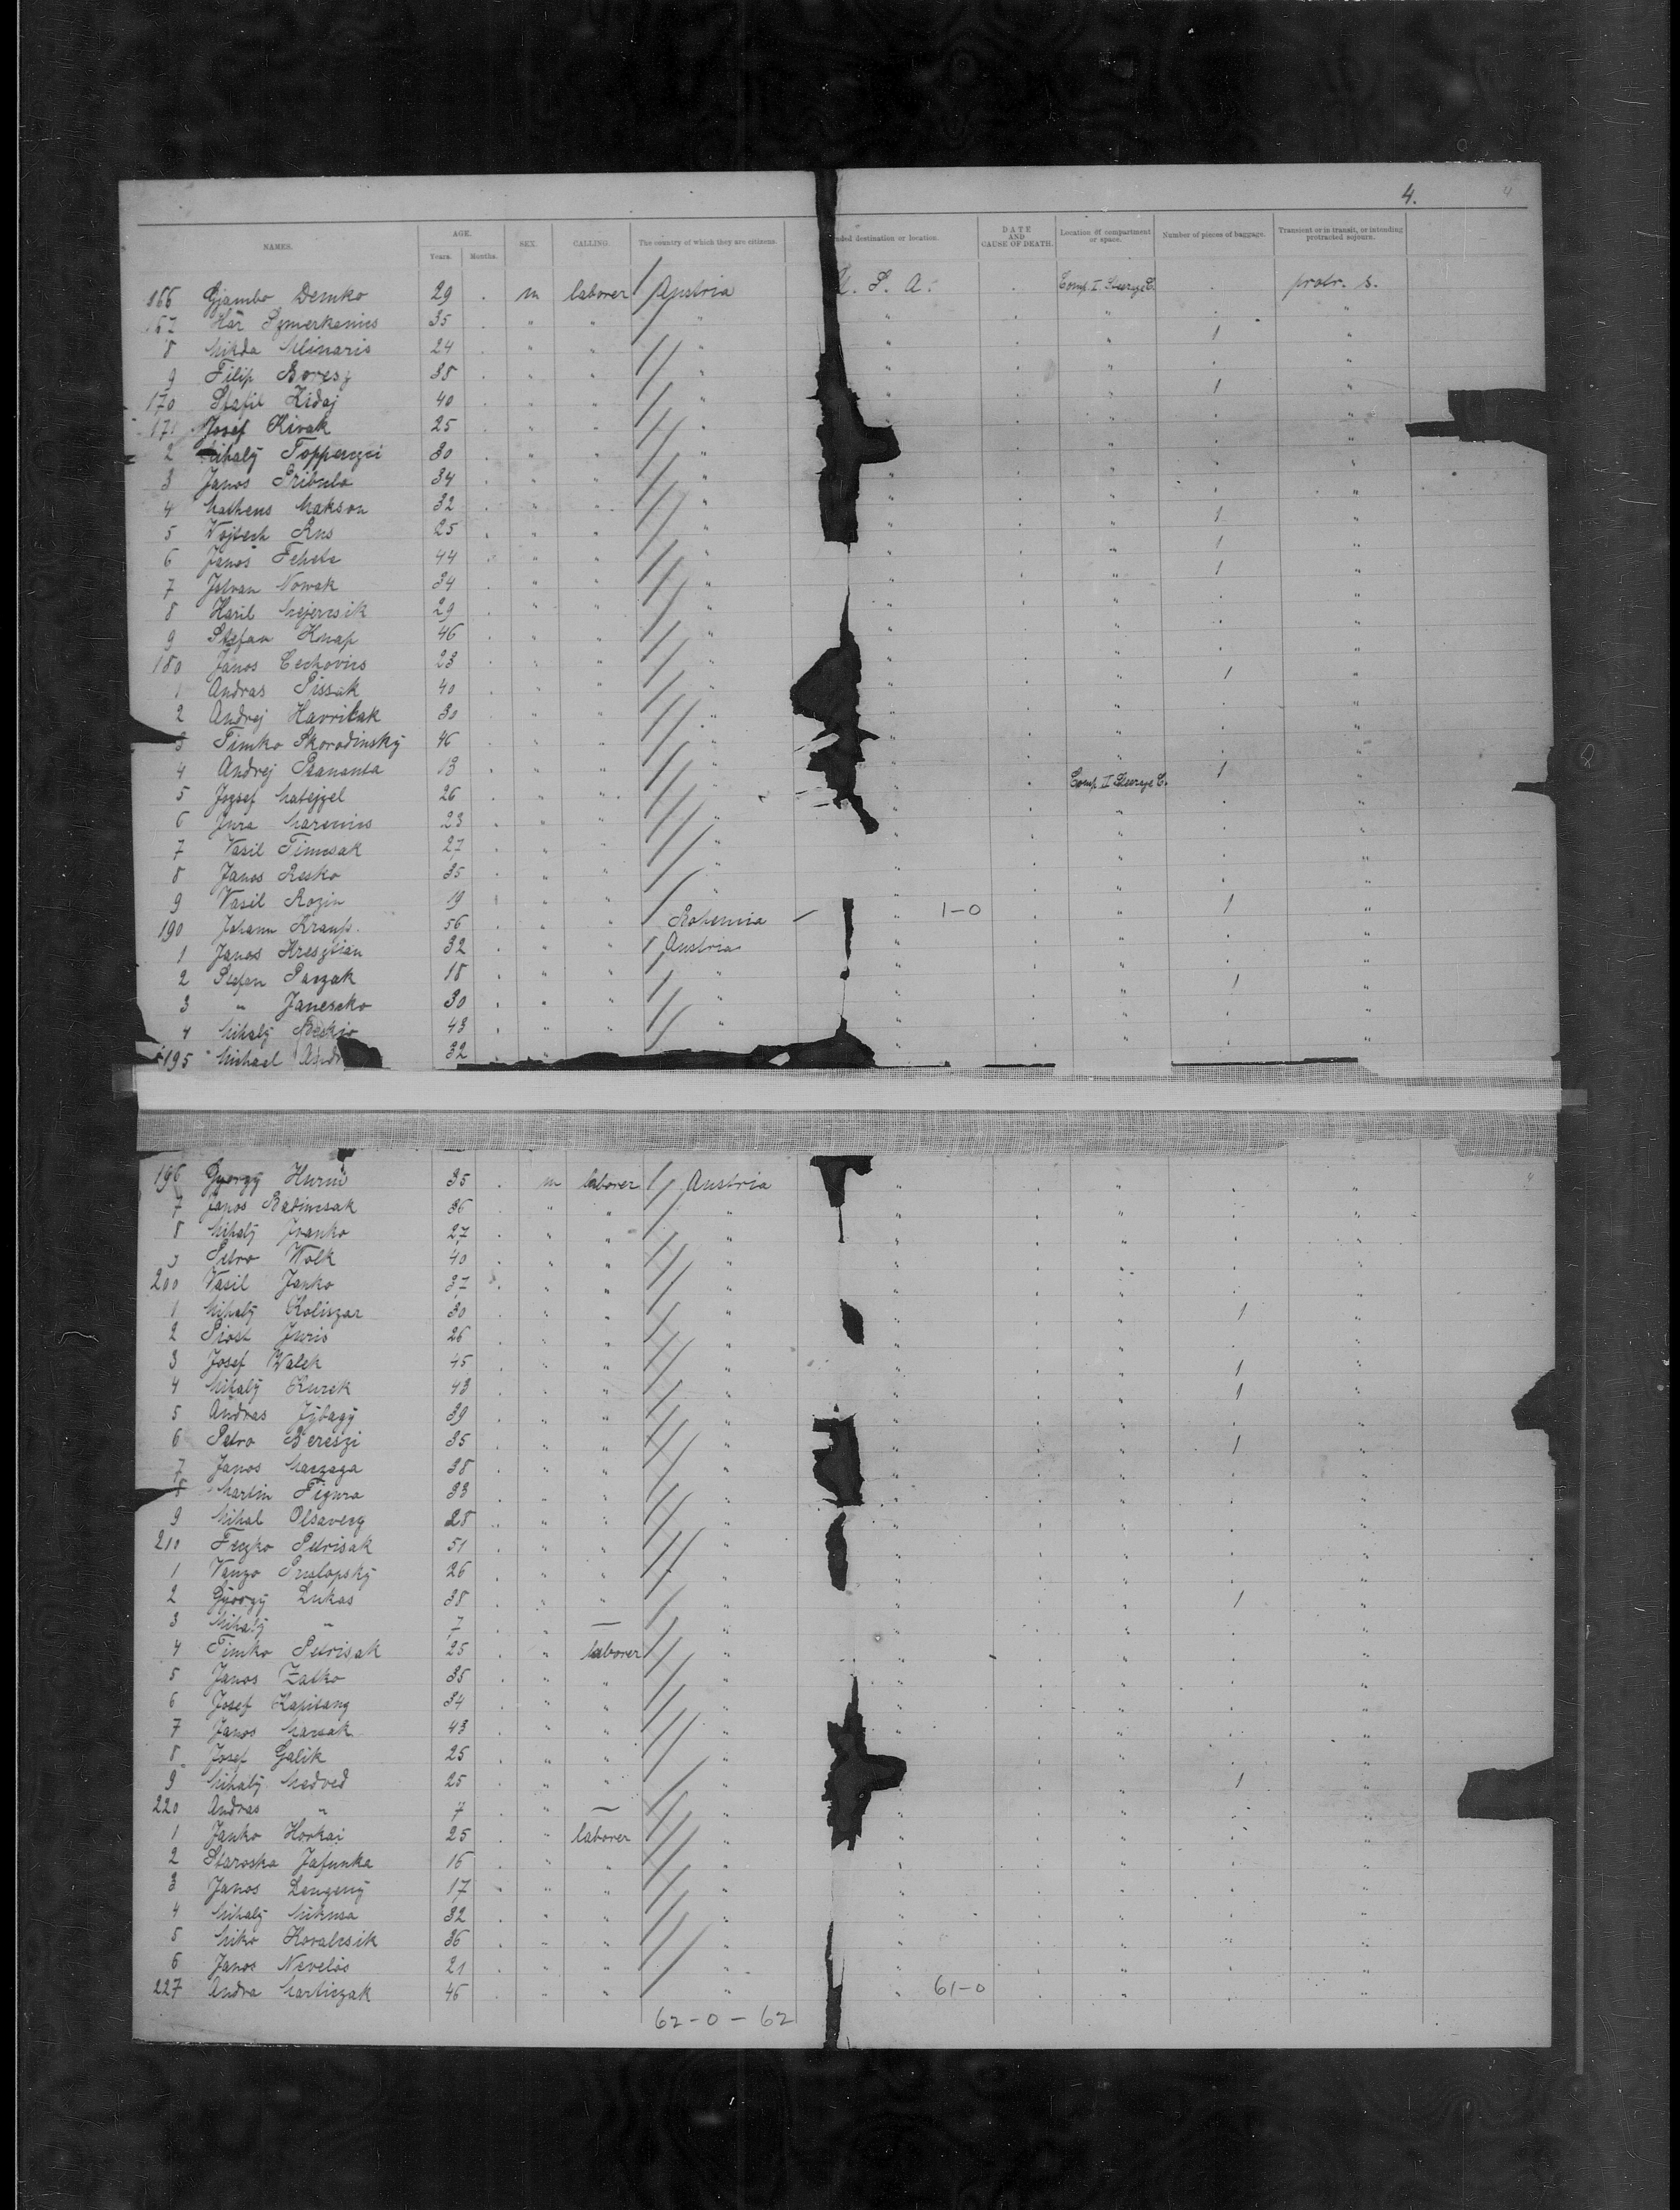 4. 4
NAMES. AGE. Years. Months. SEX. CALLING. The country of which they are citizens. nded destination or location. DATE AND CAUSE OF DEATH. Location of compartment or space. Number of pieces of baggage. Transient or in transit, or intending protracted sojourn.
166 Gjambo Demko 29 . m laborer Austria U. S. A. . Comp. I Steerage C. . protr. s.
167 Szmerkanics 35 . " " " " . " . "
8 Mlinaris 24 . " " " " . " 1 "
9 Filip Boresz 38 . " " " " . " . "
170 Stafil Zidaj 40 . " " " " . " 1 "
171 Josef Kivak 25 . " " " " . " . "
2 Mihaly 30 . " " " " . " . "
3 Janos Pribula 34 . " " " " . " . "
4 Matheus Makson 32 . " " " " . " 1 "
5 Wojtech Rus 25 . " " " " . " 1 "
6 Janos Fekete 44 . " " " " . " 1 "
7 Istvan Nowak 34 . " " " " . " . "
8 29 . " " " " . " . "
9 Stefan Knap 46 . " " " " . " . "
180 Janos Cechovics 23 . " " " " . " 1 "
1 Andras Pissak 40 . " " " " . " . "
2 Andrej Havrilak 30 . " " " " . " . "
3 Timko Skorodinsky 46 . " " " " . " . "
4 Andrej 13 . " " " " . " 1 "
5 Jozsef Matejzel 26 . " " " " . Comp. II Steerage C. . "
6 Jura 23 . " " " " . " . "
7 Vasil Timcsak 27 . " " " " . " . "
8 Janos Resko 35 . " " " " . " . "
9 Vasil Rozin 19 . " " " " . " 1 "
190 Johann Kraus 56 . " " Bohemia " 1-0 . " . "
1 Janos Hresztian 32 . " " Austria " . " . "
2 Stefan Paszak 18 . " " " " . " 1 "
3 " Janescko 30 . " " " " . " . "
4 Mihaly 43 . " " " " . " . "
195 Michael Andr 32 . "
196 György 35 . m laborer Austria " . " . "
7 Janos Badincsak 36 . " " " " . " . "
8 Mihaly Ivanko 27 . " " " " . " . "
9 Petro Wolk 40 . " " " " . " . "
200 Vasil Janko 37 . " " " " . " . "
1 Mihaly Koliszar 30 . " " " " . " 1 "
2 Juris 26 . " " " " . " . "
3 Josef Walek 45 . " " " " . " 1 "
4 Mihaly Kurek 43 . " " " " . " 1 "
5 Andras 39 . " " " " . " . "
6 Petro Bereszi 35 . " " " " . " 1 "
7 Janos Maczaga 38 . " " " " . " . "
8 Martin Figura 33 . " " " " . " . "
9 Mihal Olsaverg 28 . " " " " . " . "
210 Feczko Petrisak 51 . " " " " . " . "
1 Vanzo Pruslopsky 26 . " " " " . " . "
2 György Lukas 38 . " " " " . " 1 "
3 Mihaly " 7 . " — " " . " . "
4 Timko Petrisak 25 . " laborer " " . " . "
5 Janos Zatko 35 . " " " " . " . "
6 Josef Kapitany 34 . " " " " . " . "
7 Janos 43 . " " " " . " . "
8 Josef Galik 25 . " " " " . " . "
9 Mihaly Medved 25 . " " " " . " 1 "
220 Andras " 7 . " — " " . " . "
1 Janko Horkai 25 . " laborer " " . " . "
2 Staroska Jafunka 16 . " " " " . " . "
3 Janos Lengeny 17 . " " " " . " . "
4 Mihaly Mikusa 32 . " " " " . " . "
5 Miko Kovalcsik 36 . " " " " . " " "
6 Janos Nevelös 21 . " " " " . " . "
227 Andra Marticzak 46 . " " " " 61-0 . " . "
62-0-62